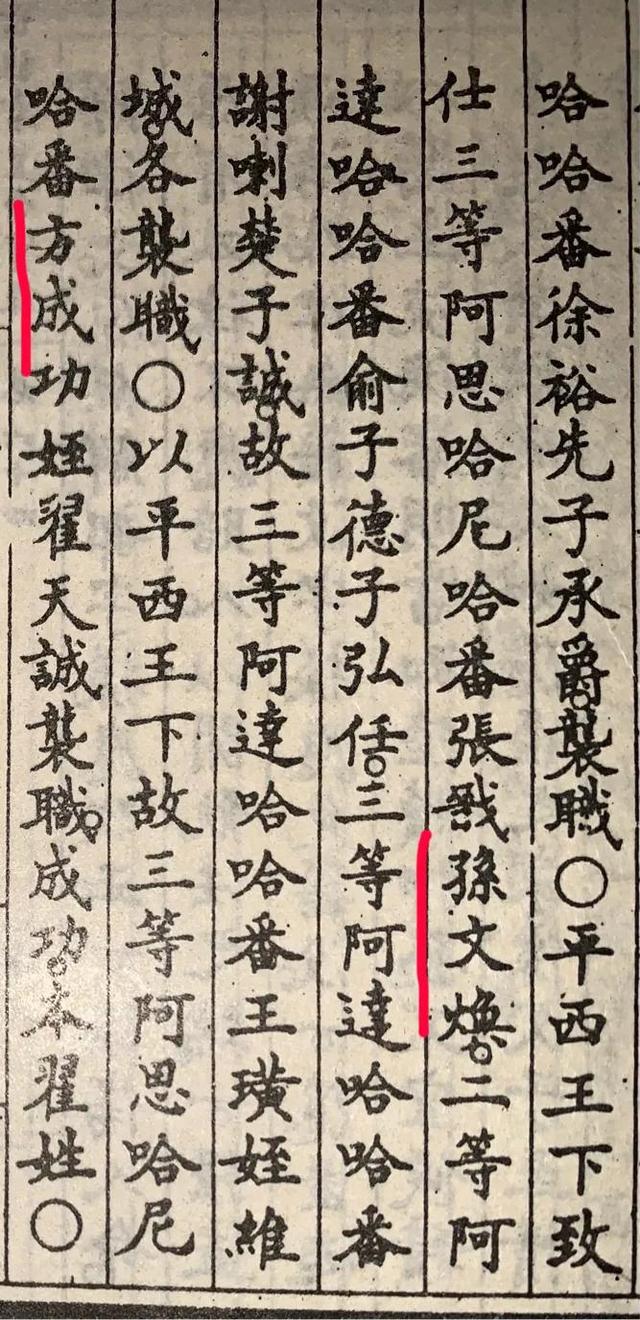 哈哈番徐裕先子承爵襲職○平西王下致
仕三等阿思哈尼哈番張戩孫文煥二等阿
達哈哈番俞子德子弘任三等阿達哈哈番
謝喇楚子誠故三等阿達哈哈番王璜姪維
城各襲職○以平西王下故三等阿思哈尼
哈番方成功姪翟天誠襲職成功本翟姓○